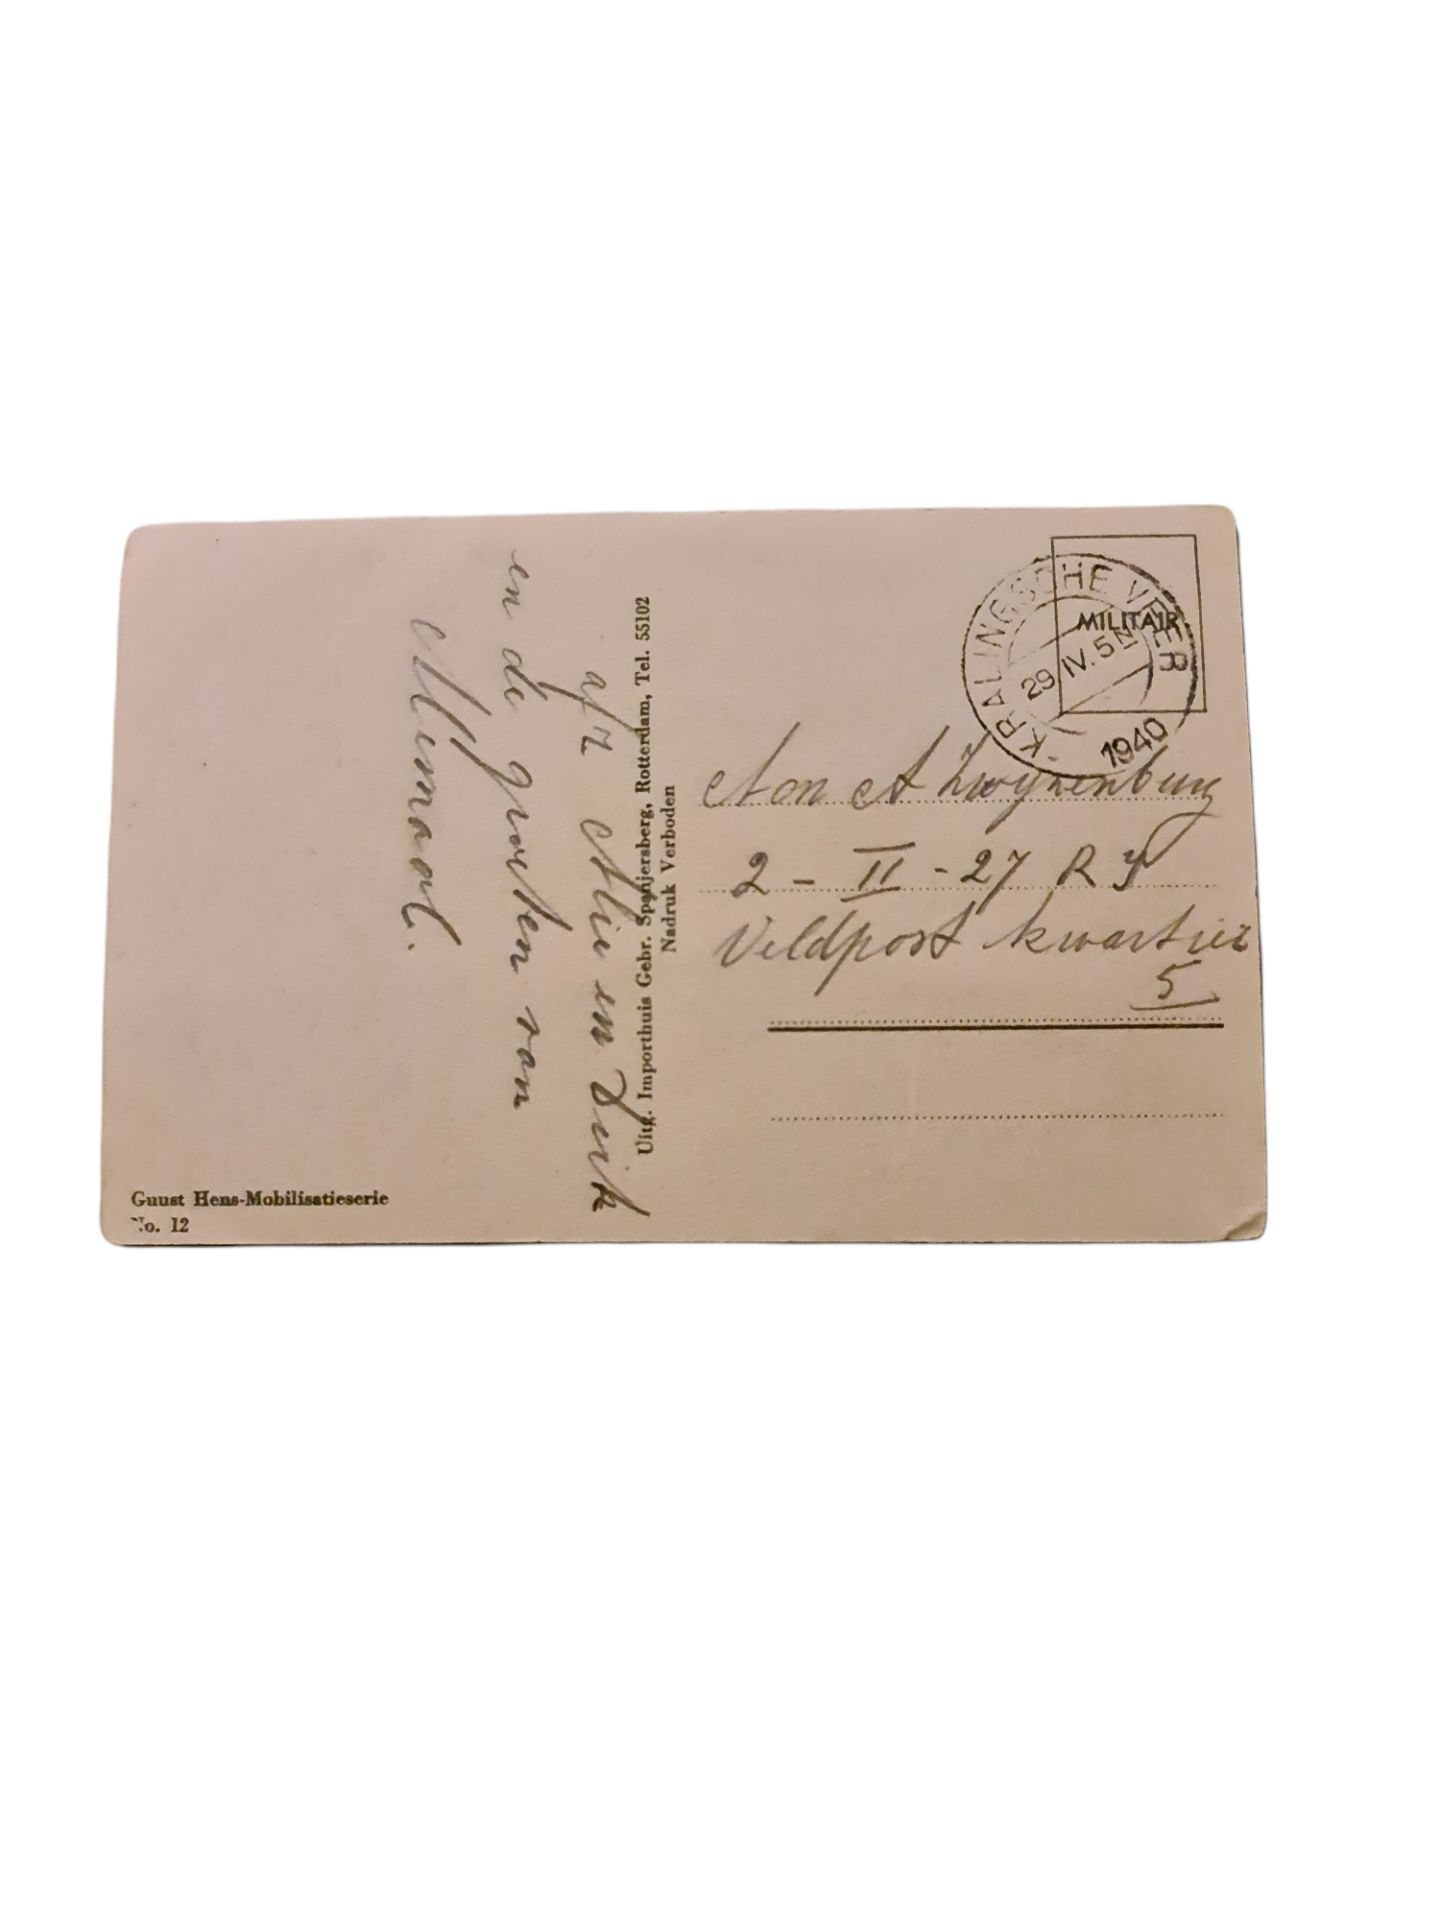 KRALINGSCHE VEER
29 IV. 5 N
1940
MILITAIR
Aan A Zwijnenburg
2 - II - 27 R I
Veldpost kwartier
5
afz Alie en Dirk
en de groeten van
Allemaal.
Uitg. Importhuis Gebr. Spanjersberg, Rotterdam, Tel. 55102
Nadruk Verboden
Guust Hens-Mobilisatieserie
No. 12